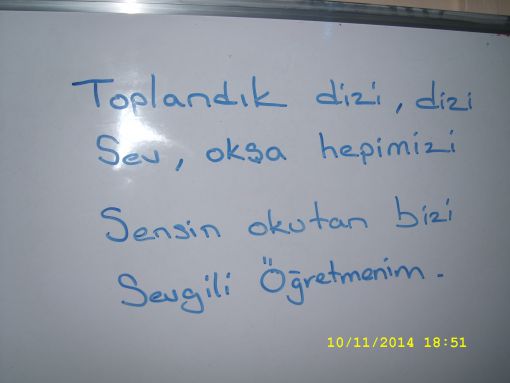 Toplandık dizi, dizi
Sev, okşa hepimizi
Sensin okutan bizi
Sevgili Öğretmenim.
10/11/2014 18:51